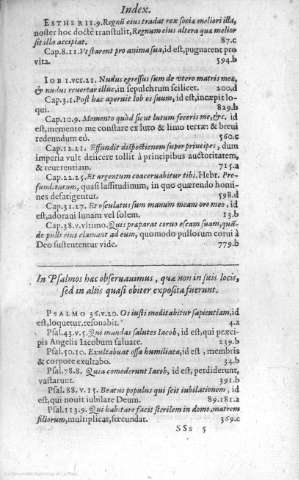 Index.
ESTHER 11.9. Regnū eius tradat rex socia meliori illa,
noster hoc doctè transtulit, Regnum eius altera quæ melior
sit illa accipiat. 87.c
Cap.8.11. Vt starent pro anima sua, id est, pugnarent pro
vita. 594.b
IOB 1. ver.21. Nudus egressus sum de vtero matris meæ,
& nudus reuertar illuc, in sepulchrum scilicet. 200.d
Cap.3.1. Post hæc aperuit Iob os suum, id est, incœpit loqui.
qui. 829.b
Cap.10.9. Memento quòd sicut lutum feceris me, &c. id
est, memento me constare ex luto & limo terræ: & breui
redeundum eò. 560.c
Cap.12.21. Effundit dispectionem super principes, dum
imperia vult deiicere tollit à principibus auctoritatem,
& reuerentiam. 715.a
Cap.22.25. Et argentum coaceruabitur tibi. Hebr. Pre-
fundzturam, quasi lassitudinum, in quo quærendo homi-
nes defatigentur. 598.d
Cap.31.27. Et osculatus sum manum meam ore meo, id
est, adoraui lunam vel solem. 13.b
Cap.38. v. vltimo. Quis præparat coruo escam suam, quã-
do pulli eius clamant ad eum, quomodo pullorum corui à
Deo sustententur vide. 779.b
In Psalmos hæc obseruauimus, quæ non in suis locis,
sed in altis quasi obiter exposita fuerunt.
PSALMO 36. v.30. Os iusti meditabitur sapientiam, id
est, loquetur, resonabit. 4.a
Psal.43. v.5. Qui mandas salutes Iacob, id est, qui præci-
pis Angelis Iacobum saluare. 239.b
Psal.50.10. Exultabunt ossa humiliata, id est, membris
& corpore exultabo. 34.b
Psal.78.8. Quia comederunt Iacob, id est, perdiderunt,
vastarunt. 391.b
Psal.88. v.15. Beatus populus qui scit iubilationem, id
est, qui nouit iubilare Deum. 89.181.a
Psal.113.9. Qui habitare facit sterilem in domo, matrem
filiorum, multiplicat, fœcundat. 369.c
SSs 5